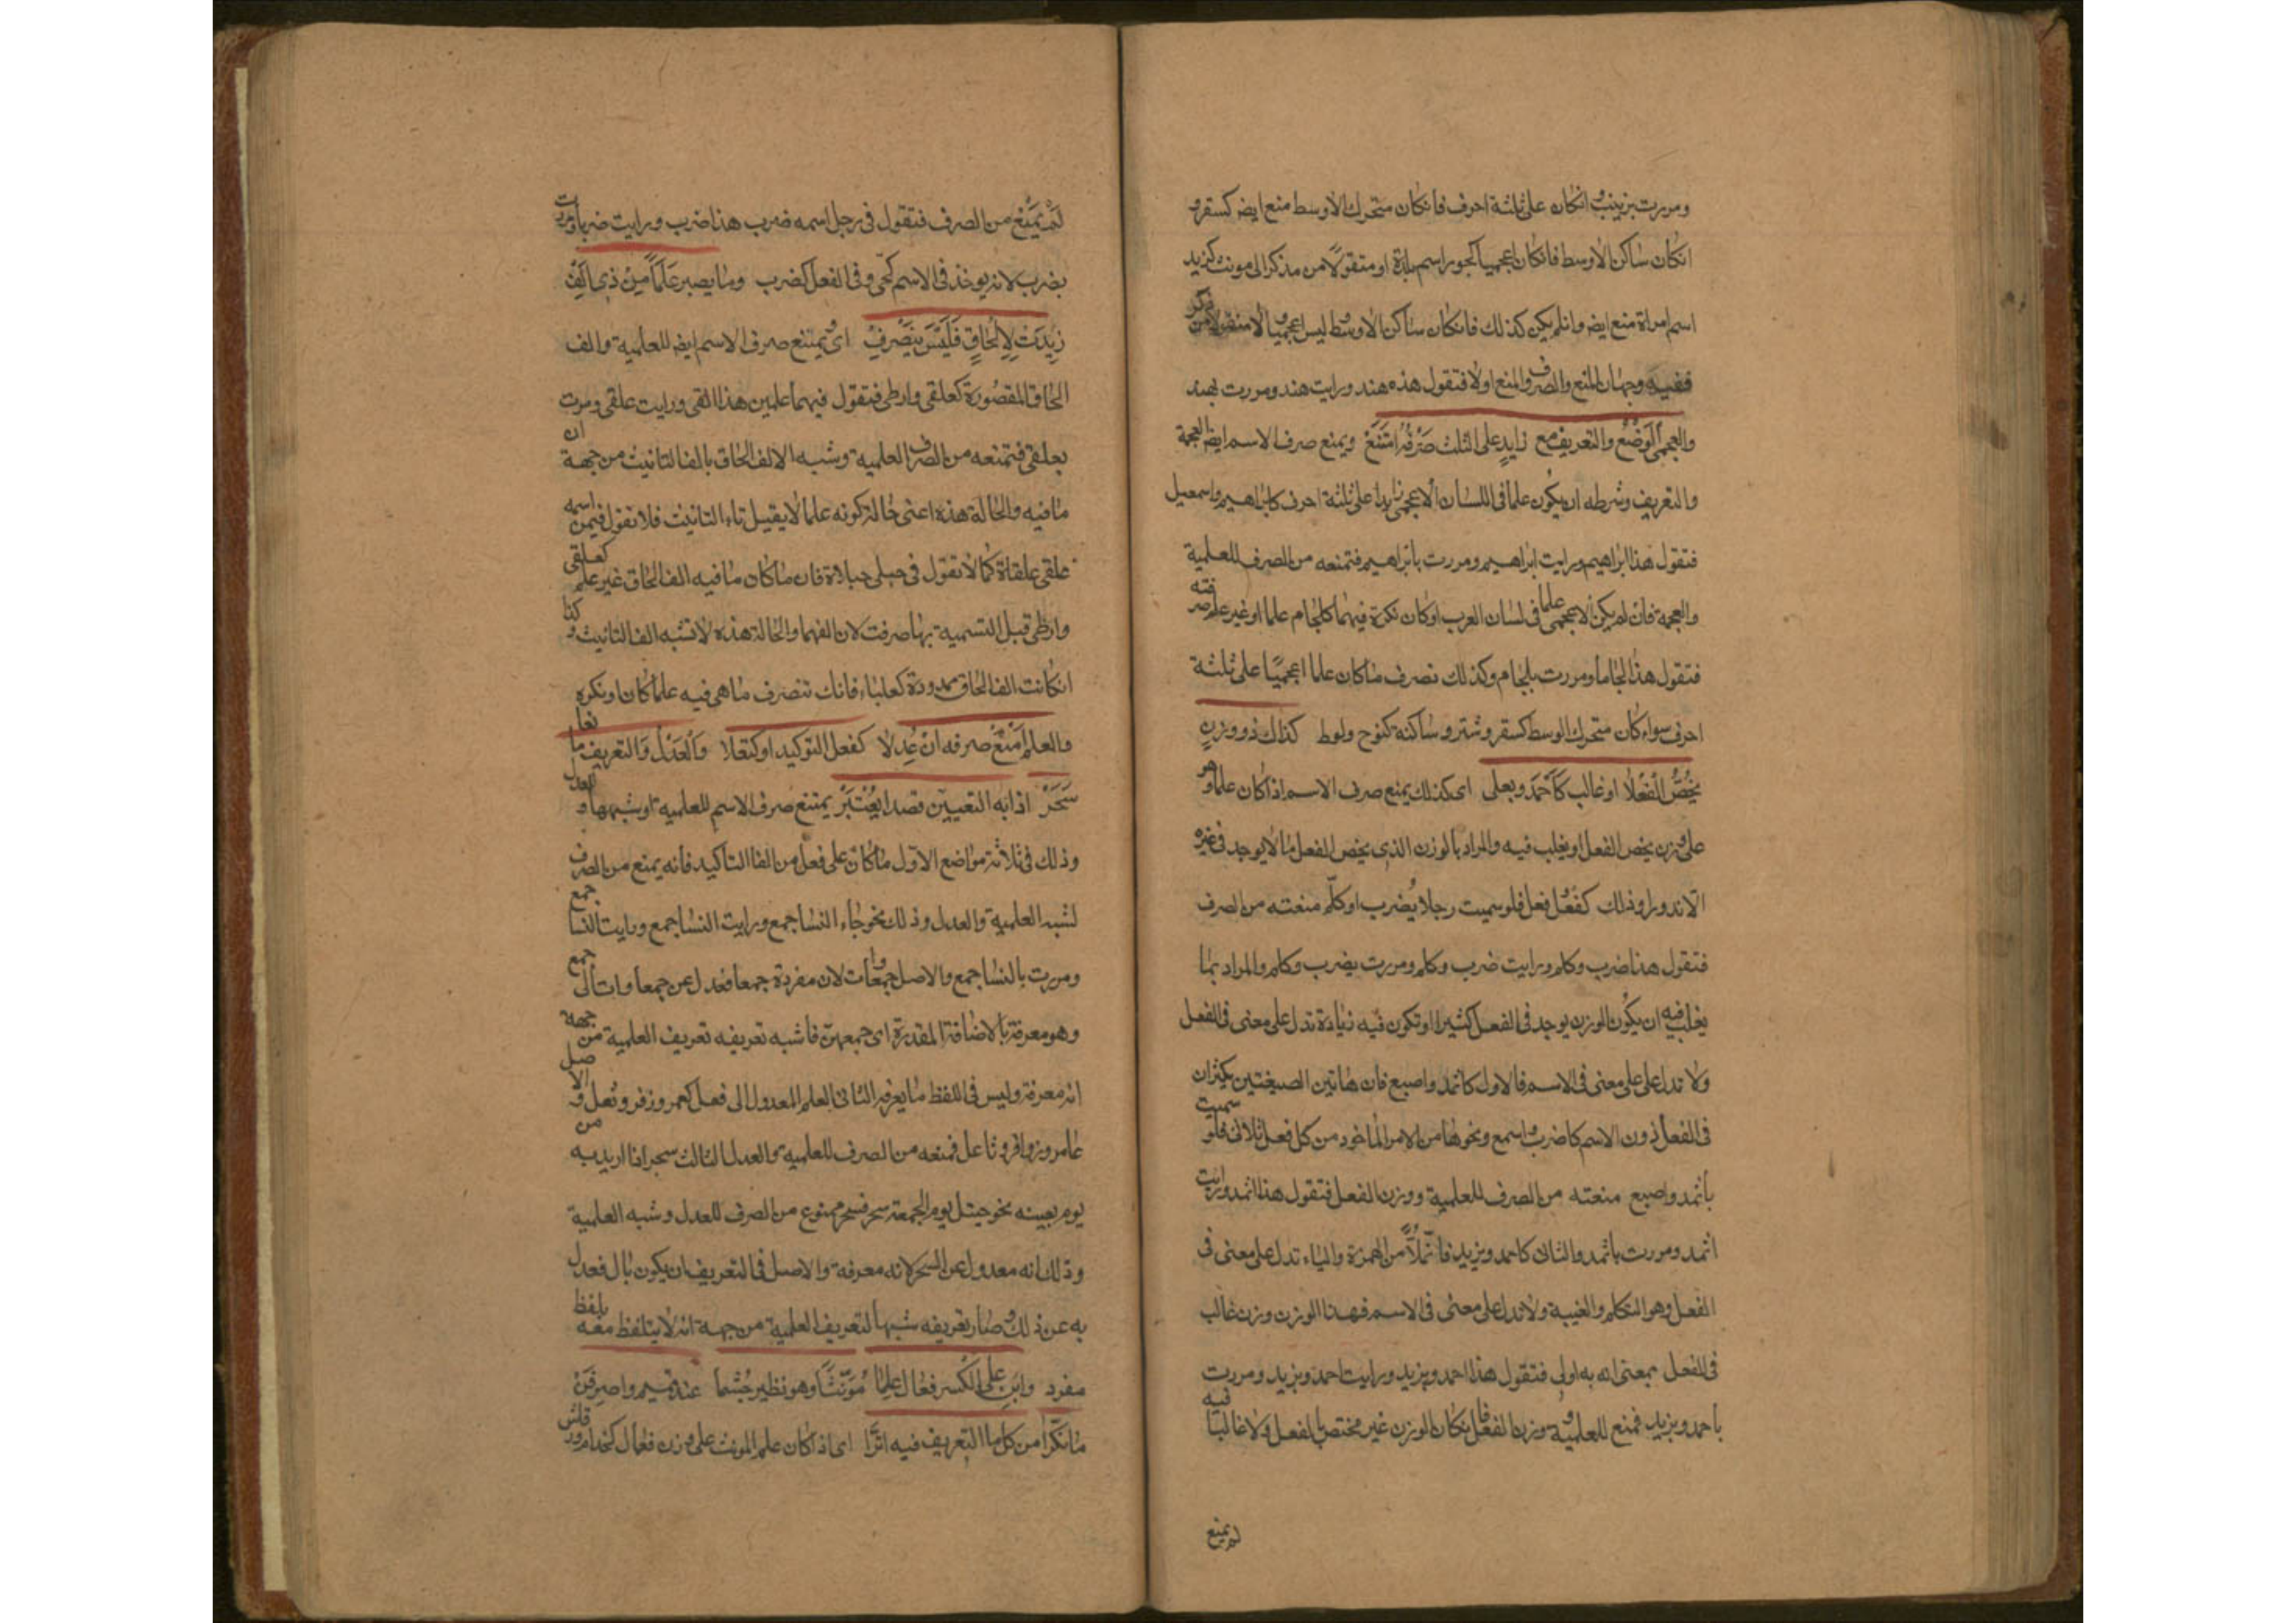 ومررت بزينب وانكان على ثلثة احرف فانكان متحرك الاوسط منع ايضا كسقر و
انكان ساكن الاوسط فانكان اعجميا كجور اسم بلدة او منقولا من مذكر الى مونث كزيد
اسم امراة منع ايضا وان لم يكن كذلك فانكان ساكن الاوسط وليس اعجميا ولا منقولا من ذكر
ففيه وجهان المنع والصرف والمنع اولا فتقول هذه هند ورايت هند ومررت بهند
والعجمى الوضع والتعريف مع زايد على الثلث صرفه امتنع ويمنع صرف الاسم ايضا العجمة
والتعريف وشرطه ان يكون علما فى اللسان الاعجمى زايدا على ثلثة احرف كابراهيم واسمعيل
فتقول هذا ابراهيم ورايت ابراهيم ومررت بابراهيم فتمنعه من الصرف للعلمية
والعجمة فان لم يكن الاعجمى علما فى لسان العرب او كان نكرة فيهما كلجام علما او غير علم صرفته
فتقول هذا لجاما ومررت بلجام وكذلك تصرف ما كان علما اعجميا على ثلثة
احرف سواء كان متحرك الوسط كسقر وشتر وساكنة كنوح ولوط كذاك ذو وزن
يخص الفعلا او غالب كاحمد ويعلى اى كذلك يمنع صرف الاسم اذا كان علما وهو
على وزن يخص الفعل او يغلب فيه والمراد بالوزن الذى يخص الفعل ما لا يوجد فى غيره
الا ندورا وذلك كفعل فعل فلو سميت رجلا يضرب او كلم منعته من الصرف
فتقول هذا ضرب وكلم ورايت ضرب وكلم ومررت بضرب وكلم والمراد بما
يغلب فيه ان يكون الوزن يوجد فى الفعل كثيرا او تكون فيه زيادة تدل على معنى فى الفعل
ولا تدل على على معنى فى الاسم فالاول كاثمد واصبع فان هاتين الصيغتين يكثران
فى الفعل دون الاسم كاضرب واسمع ونحوها من الامر الماخوذ من كل فعل ثلاثى فلو سميت
باثمد واصبع منعته من الصرف للعلمية ووزن الفعل فتقول هذا اثمد ورايت
اثمد ومررت باثمد والثانى كاحمد ويزيد فان كلا من الهمزة والياء تدل على معنى فى
الفعل وهو التكلم والغيبة ولا تدل على معنى فى الاسم فهذا الوزن وزن غالب
فى الفعل بمعنى انه به اولى فتقول هذا احمد ويزيد ورايت احمد ويزيد ومررت
باحمد ويزيد فمنع للعلمية ووزن الفعل فانكان الوزن غير مختص بالفعل ولا غالبا فيه
لم يمنع
لم يمنع من الصرف فتقول فى رجل اسمه ضرب هذا ضرب ورايت ضربا ومررت
بضرب لانه يوخذ فى الاسم كحجر وفى الفعل كضرب وما يصير علما من ذى الف
زيدت لالحاق فليس ينصرف اى ويمتنع صرف الاسم ايضا للعلمية والف
الحاق المقصورة كعلقى وارطى فتقول فيهما علمين هذا القى ورايت علقى ومررت
بعلقى فتمنعه من الصرف العلمية وشبه الالف الحاق بالف التانيث من جهة ان
ما فيه والحالة هذه اعنى حالة كونه علما لا يقبل تاء التانيث فلا تقول فيمن اسمه
علقى علقاة كما لا تقول فى حبلى حبلاة فان ما كان ما فيه الف الحاق غير علم كعلقى
وارطى قبل التسمية بها صرفت لان الفهما والحالة هذه لا تشبه الف التانيث وكذا
انكانت الف الحاق ممدودة كعلباء فانك تنصرف ما هى فيه علما كان او نكره
والعلم امنع صرفه ان عدلا كفعل التوكيد او كثعلا والعدل والتعريف مانعا
سحر اذا به التعيين قصدا يعتبر يمتنع صرف الاسم للعلمية او شبهها والعدل
وذلك فى ثلاثة مواضع الاول ما كان على فعل من الفاا التاكيد فانه يمنع من الصرف
لشبه العلمية والعدل وذلك نحو جاء النسا جمع ورايت النسا جمع ورايت النسا جمع
ومررت بالنسا جمع والاصل جمعاوات لان مفردة جمعا فعدل عن جمعاوات الى جمع
وهو معرفة بالاضافة المقدرة اى جمعهن فاشبه تعريفه تعريف العلمية من جهة
انه معرفة وليس فى اللفظ ما يعرفه الثانى العلم المعدول الى فعل كعمر وزفر وثعل والاصل
عامر وزافر وثاعل فمنعه من الصرف للعلمية والعدل الثالث سحر اذا اريد به من
يوم بعينه نحو جيتك يوم الجمعة سحر فسحر ممنوع من الصرف للعدل وشبه العلمية
وذلك انه معدول عن السحر لانه معرفة والاصل فى التعريف ان يكون بال فعدل
به عن ذلك وصار تعريفه شبها لتعريف العلمية من جهة انه لا يتلفظ معه بلفظ
مفرد وابن على الكسر فعال علما مونثا وهو نظير جشما عند تميم واصرفن
ما نكرا من كل ما التعريف فيه اثرا اى اذا كان علم المونث على وزن فعال كحذام ورقاش